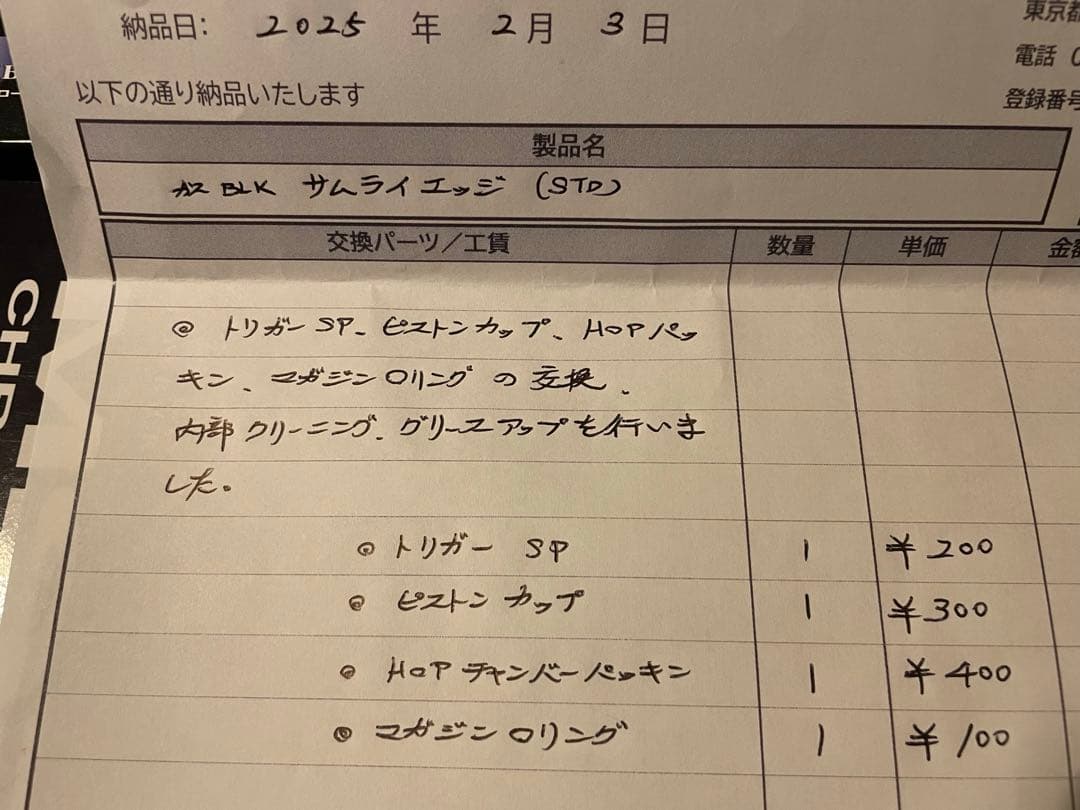 納品日: 2025 年 2月 3日
東京都
電話 0
以下の通り納品いたします
登録番号
製品名
ガス BLK サムライエッジ (STD)
交換パーツ/工賃 数量 単価 金額
◎ トリガー SP、ピストンカップ、HOPパッ
キン、マガジンOリングの交換、
内部クリーニング、グリースアップを行いま
した。
◎ トリガー SP 1 ¥200
◎ ピストンカップ 1 ¥300
◎ HOPチャンバーパッキン 1 ¥400
◎ マガジンOリング 1 ¥100
CHR